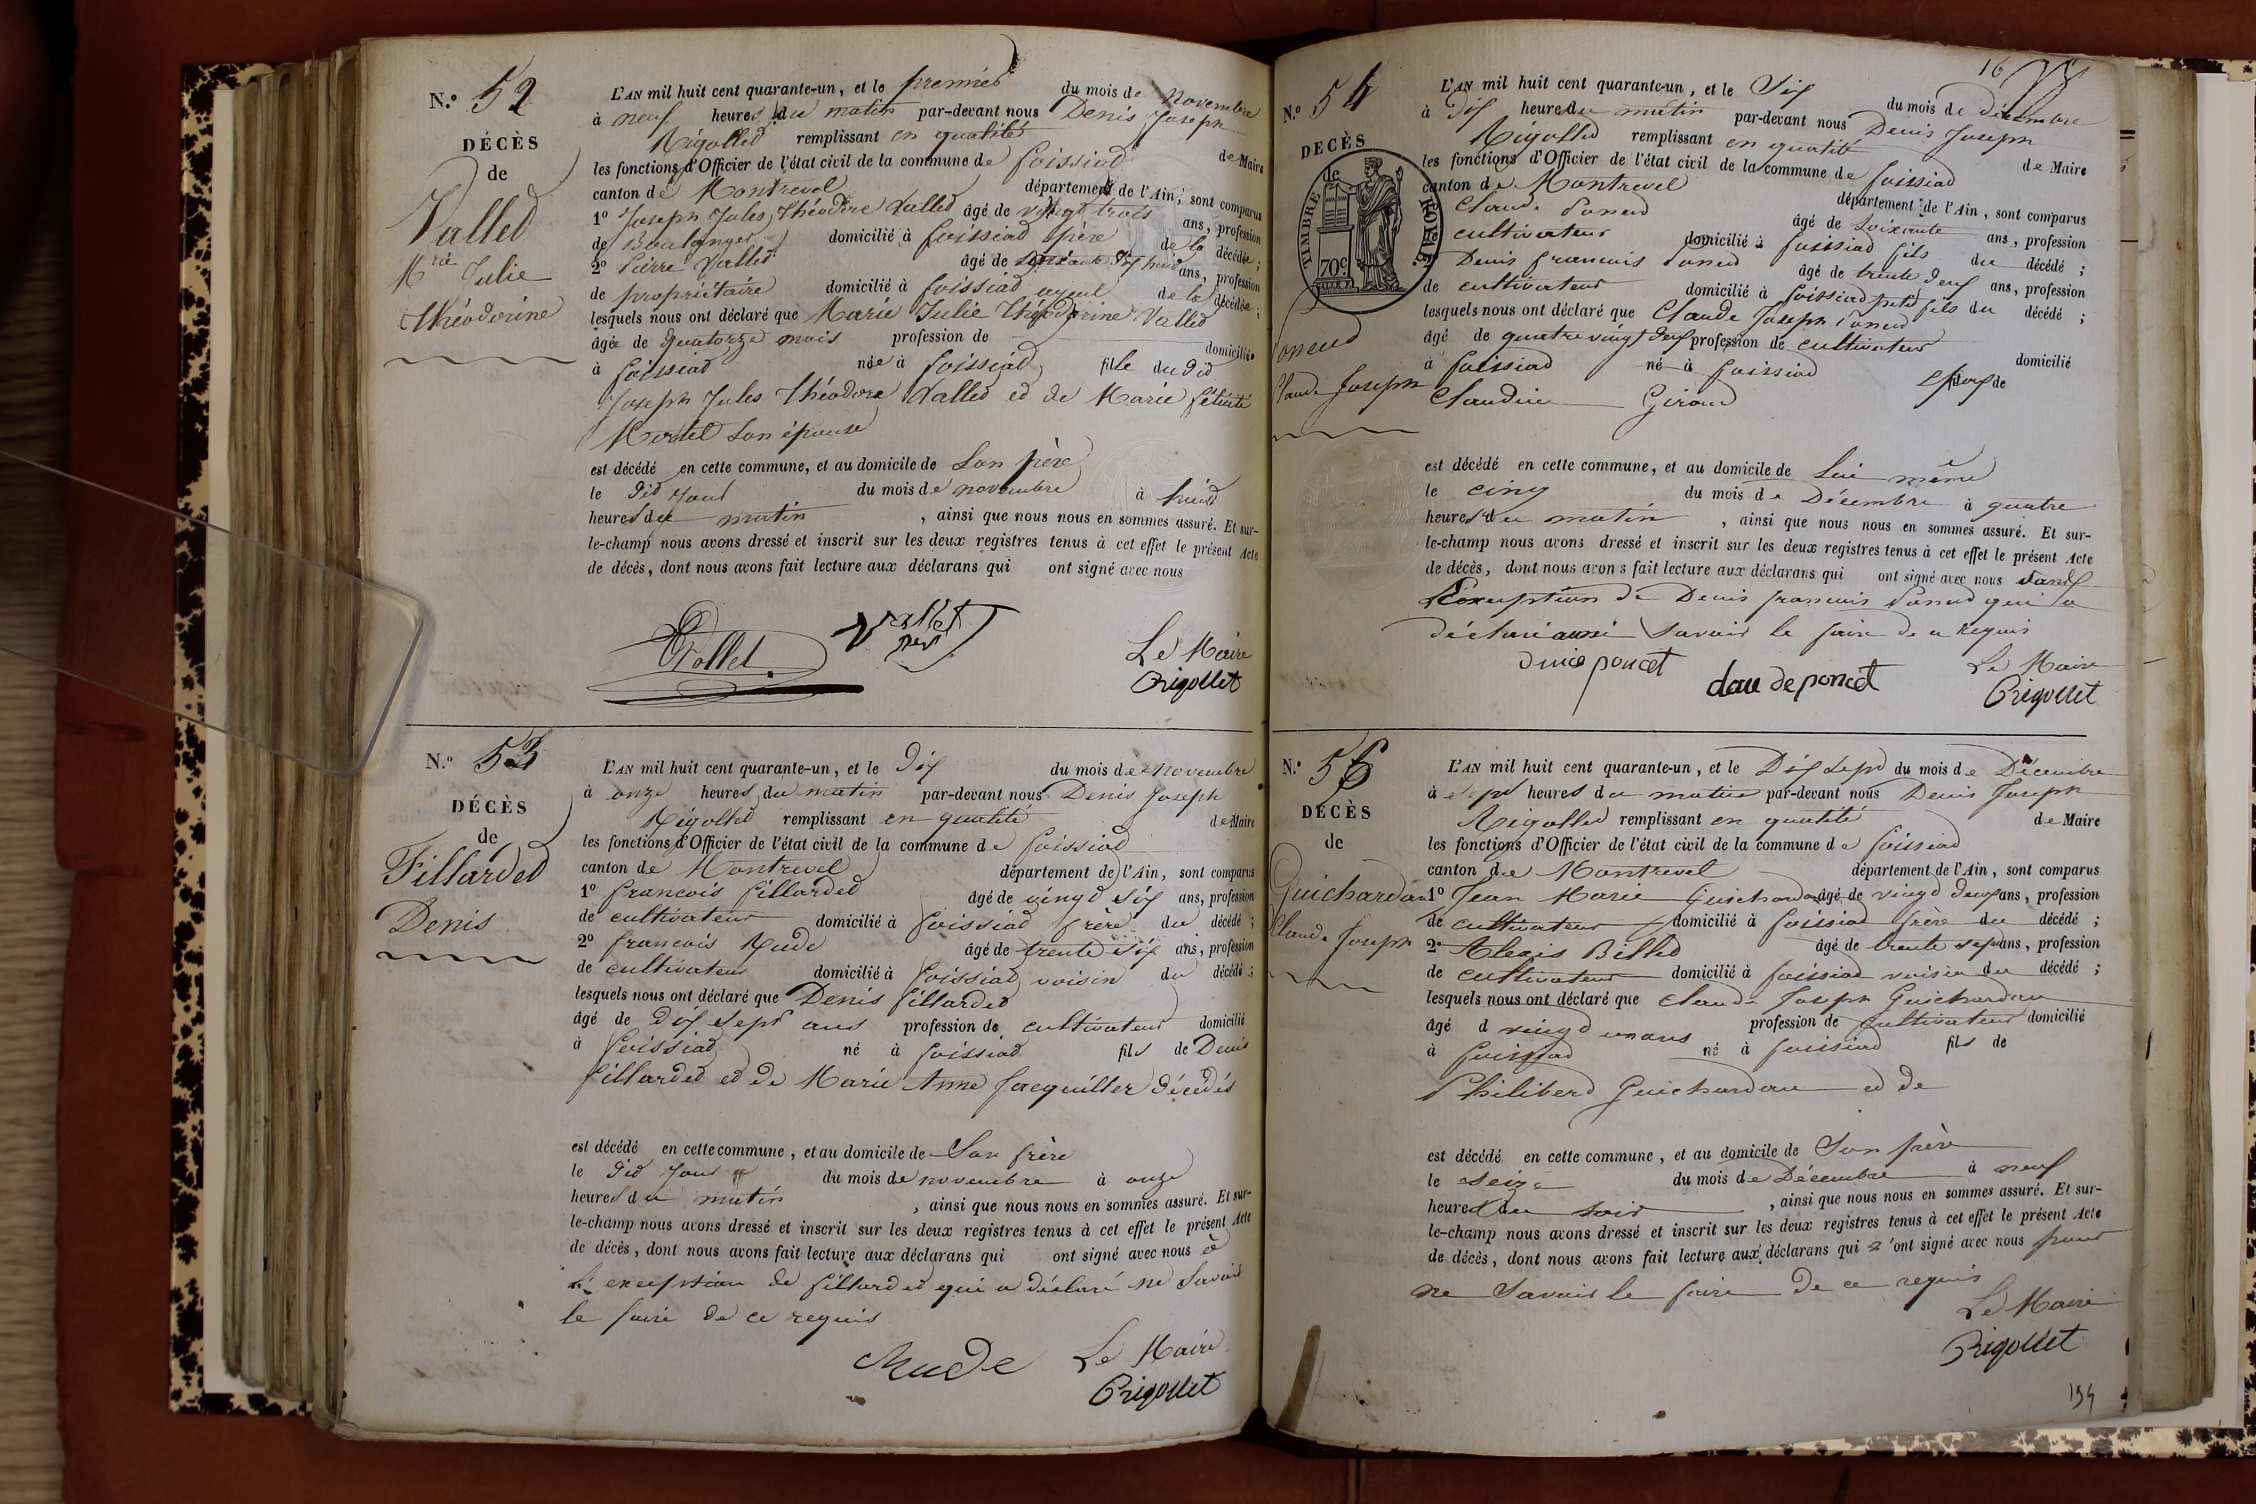 N.º 52
DÉCÈS
de
Vallet
M.rie Julie
Théodorine
L'AN mil huit cent quarante-un, et le premier du mois de novembre
à neuf heures du matin par-devant nous Denis Joseph
Rigollet remplissant en qualité de Maire
les fonctions d'Officier de l'état civil de la commune de foissiat
canton de Montrevel département de l'Ain, sont comparus
1º Joseph Jules Théodore Vallet âgé de vingt trois ans, profession
de Boulanger domicilié à foissiat père de la décédée ;
2º Pierre Vallet âgé de soixante dix huit ans, profession
de propriétaire domicilié à foissiat ayeul de la décédée ;
lesquels nous ont déclaré que Marie Julie Théodorine Vallet
âgée de quatorze mois profession de domiciliée
à foissiat née à foissiat fille du dit
Joseph Jules Théodore Vallet et de Marie félicité
Mortel son épouse
est décédé en cette commune, et au domicile de son père
le dit jour du mois de novembre à huit
heures du matin, ainsi que nous nous en sommes assuré. Et sur-
le-champ nous avons dressé et inscrit sur les deux registres tenus à cet effet le présent Acte
de décès, dont nous avons fait lecture aux déclarans qui ont signé avec nous
Vallet vallet
Le Maire
Rigollet
N.º 53
DÉCÈS
de
Fillardet
Denis
L'AN mil huit cent quarante-un, et le dix du mois de novembre
à onze heures du matin par-devant nous Denis Joseph
Rigollet remplissant en qualité de Maire
les fonctions d'Officier de l'état civil de la commune de foissiat
canton de Montrevel département de l'Ain, sont comparus
1º francois fillardet âgé de vingt six ans, profession
de cultivateur domicilié à foissiat frère du décédé ;
2º francois Rude âgé de trente six ans, profession
de cultivateur domicilié à foissiat voisin du décédé ;
lesquels nous ont déclaré que Denis fillardet
âgé de dix sept ans profession de cultivateur domicilié
à foissiat né à foissiat fils de Denis
fillardet et de Marie Anne Jacquiller décédés
est décédé en cette commune, et au domicile de son frère
le dit jour du mois de novembre à onze
heures du matin, ainsi que nous nous en sommes assuré. Et sur-
le-champ nous avons dressé et inscrit sur les deux registres tenus à cet effet le présent Acte
de décès, dont nous avons fait lecture aux déclarans qui ont signé avec nous à
l'exception de fillardet qui a déclaré ne savoir
le faire de ce requis
Rude Le Maire
Rigollet
16
N.º 54
DÉCÈS
de
TIMBRE ROYAL
70 c
Poncet
Claude Joseph
L'AN mil huit cent quarante-un, et le Six du mois de décembre
à dix heures du matin par-devant nous Denis Joseph
Rigollet remplissant en qualité de Maire
les fonctions d'Officier de l'état civil de la commune de foissiat
canton de Montrevel département de l'Ain, sont comparus
Claude Poncet âgé de soixante ans, profession
cultivateur domicilié à foissiat fils du décédé ;
Denis francois Poncet âgé de trente deux ans, profession
de cultivateur domicilié à foissiat petit fils du décédé ;
lesquels nous ont déclaré que Claude Joseph Poncet
âgé de quatre vingt deux profession de cultivateur domicilié
à foissiat né à foissiat Epoux de
Claudine Giroud
est décédé en cette commune, et au domicile de lui même
le cinq du mois de Décembre à quatre
heures du matin, ainsi que nous nous en sommes assuré. Et sur-
le-champ nous avons dressé et inscrit sur les deux registres tenus à cet effet le présent Acte
de décès, dont nous avons fait lecture aux déclarans qui ont signé avec nous
L'exception de Denis francois Poncet qui a
déclaré savoir le faire de ce requis
poncet claude poncet
Le Maire
Rigollet
N.º 55
DÉCÈS
de
Guichardan
Claude Joseph
L'AN mil huit cent quarante-un, et le Dix sept du mois de Décembre
à sept heures du matin par-devant nous Denis Joseph
Rigollet remplissant en qualité de Maire
les fonctions d'Officier de l'état civil de la commune de foissiat
canton de Montrevel département de l'Ain, sont comparus
1º Jean Marie Guichardan âgé de vingt deux ans, profession
de cultivateur domicilié à foissiat frère du décédé ;
2º Alexis Billet âgé de trente sept ans, profession
de cultivateur domicilié à foissiat voisin du décédé ;
lesquels nous ont déclaré que Claude Joseph Guichardan
âgé d vingt un ans profession de cultivateur domicilié
à foissiat né à foissiat fils de
Philibert Guichardan et de
est décédé en cette commune, et au domicile de son père
le seize du mois de Décembre à neuf
heures du soir, ainsi que nous nous en sommes assuré. Et sur-
le-champ nous avons dressé et inscrit sur les deux registres tenus à cet effet le présent Acte
de décès, dont nous avons fait lecture aux déclarans qui n'ont signé avec nous pour
ne savoir le faire de ce requis
Le Maire
Rigollet
154